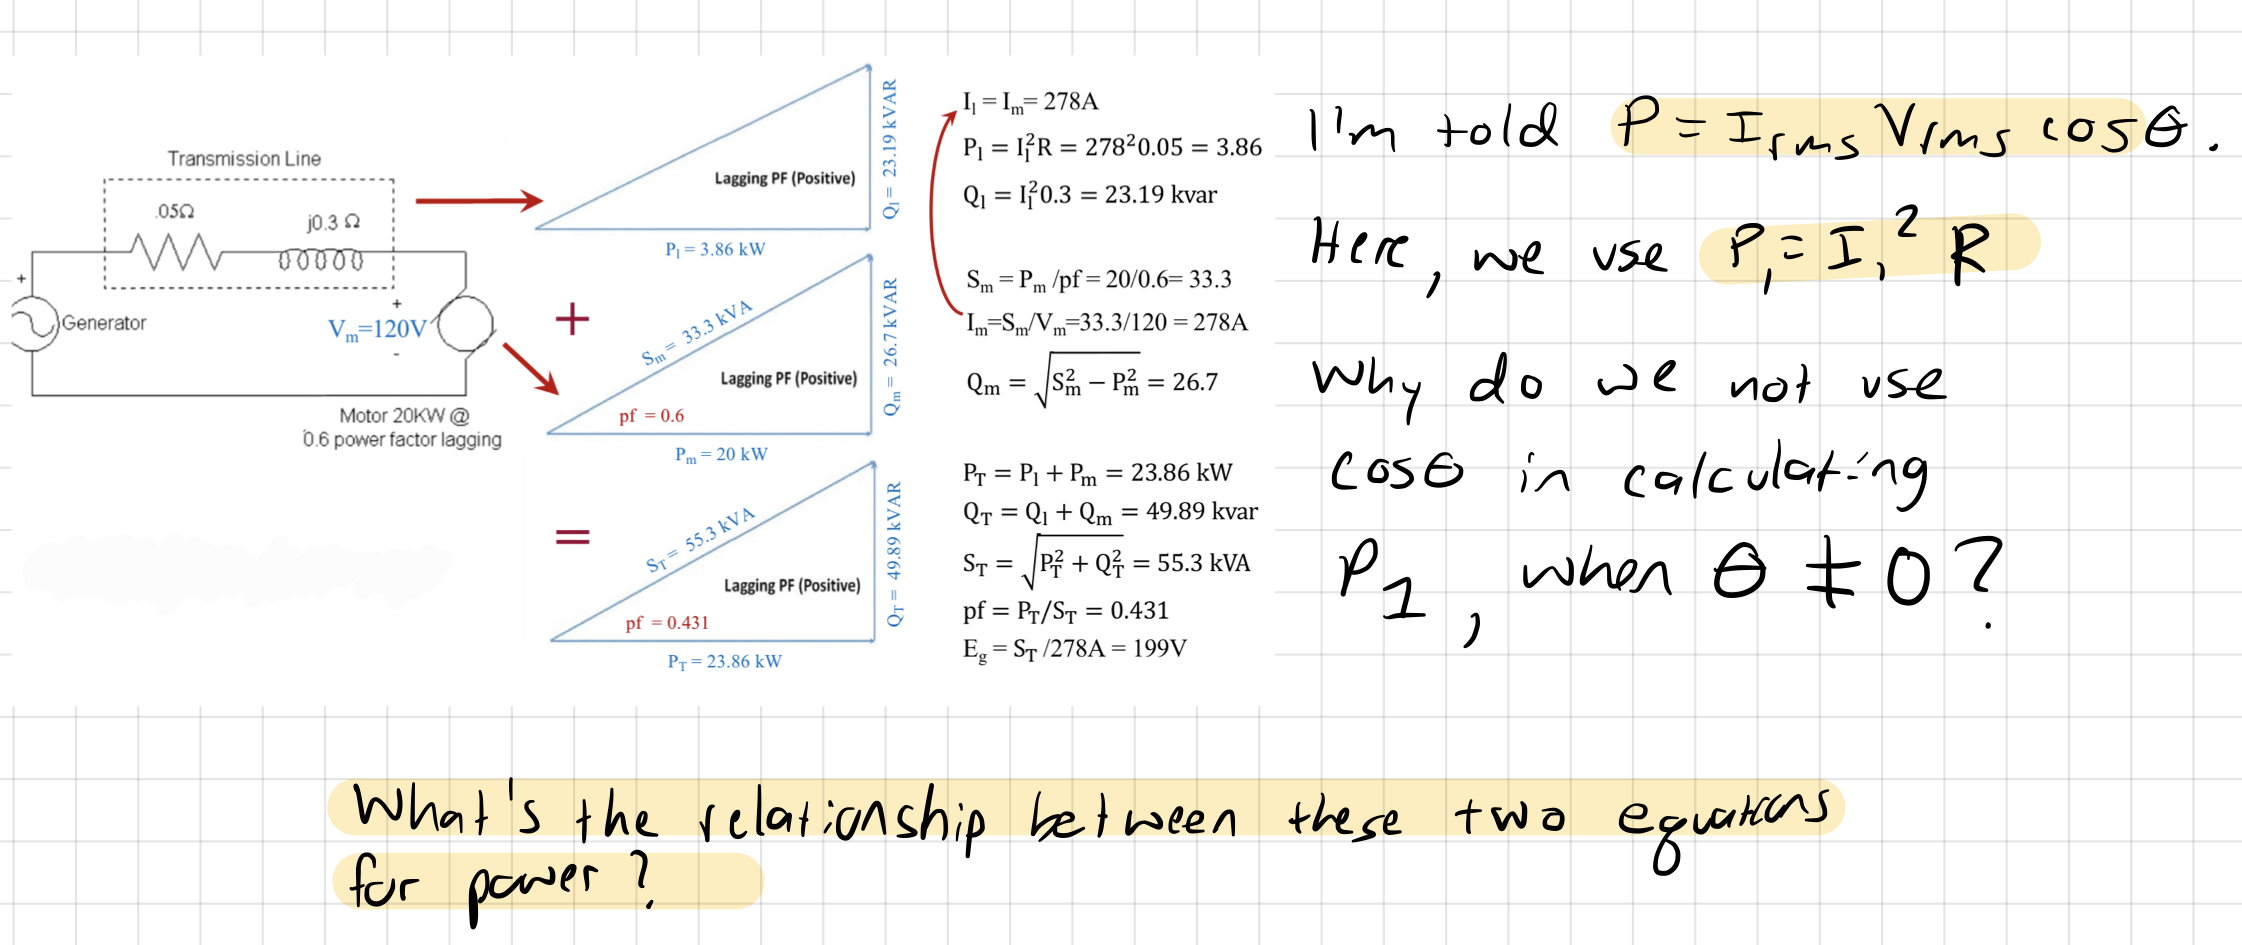 Transmission Line
.05Ω
j0.3 Ω
+
Generator
+
Vm=120V
-
Motor 20KW @
0.6 power factor lagging
Lagging PF (Positive)
Ql = 23.19 kVAR
Pl = 3.86 kW
+
Sm = 33.3 kVA
Lagging PF (Positive)
pf = 0.6
Qm = 26.7 kVAR
Pm = 20 kW
=
ST = 55.3 kVA
Lagging PF (Positive)
pf = 0.431
QT = 49.89 kVAR
PT = 23.86 kW
Il = Im = 278A
Pl = Il²R = 278²0.05 = 3.86
Ql = Il²0.3 = 23.19 kvar
Sm = Pm /pf = 20/0.6= 33.3
Im=Sm/Vm=33.3/120 = 278A
Qm = √(Sm² − Pm²) = 26.7
PT = Pl + Pm = 23.86 kW
QT = Ql + Qm = 49.89 kvar
ST = √(PT² + QT²) = 55.3 kVA
pf = PT/ST = 0.431
Eg = ST /278A = 199V
I'm told P = Irms Vrms cosθ.
Here, we use P₁ = I₁² R
Why do we not use
cosθ in calculating
P1, when θ ≠ 0?
What's the relationship between these two equations
for power?